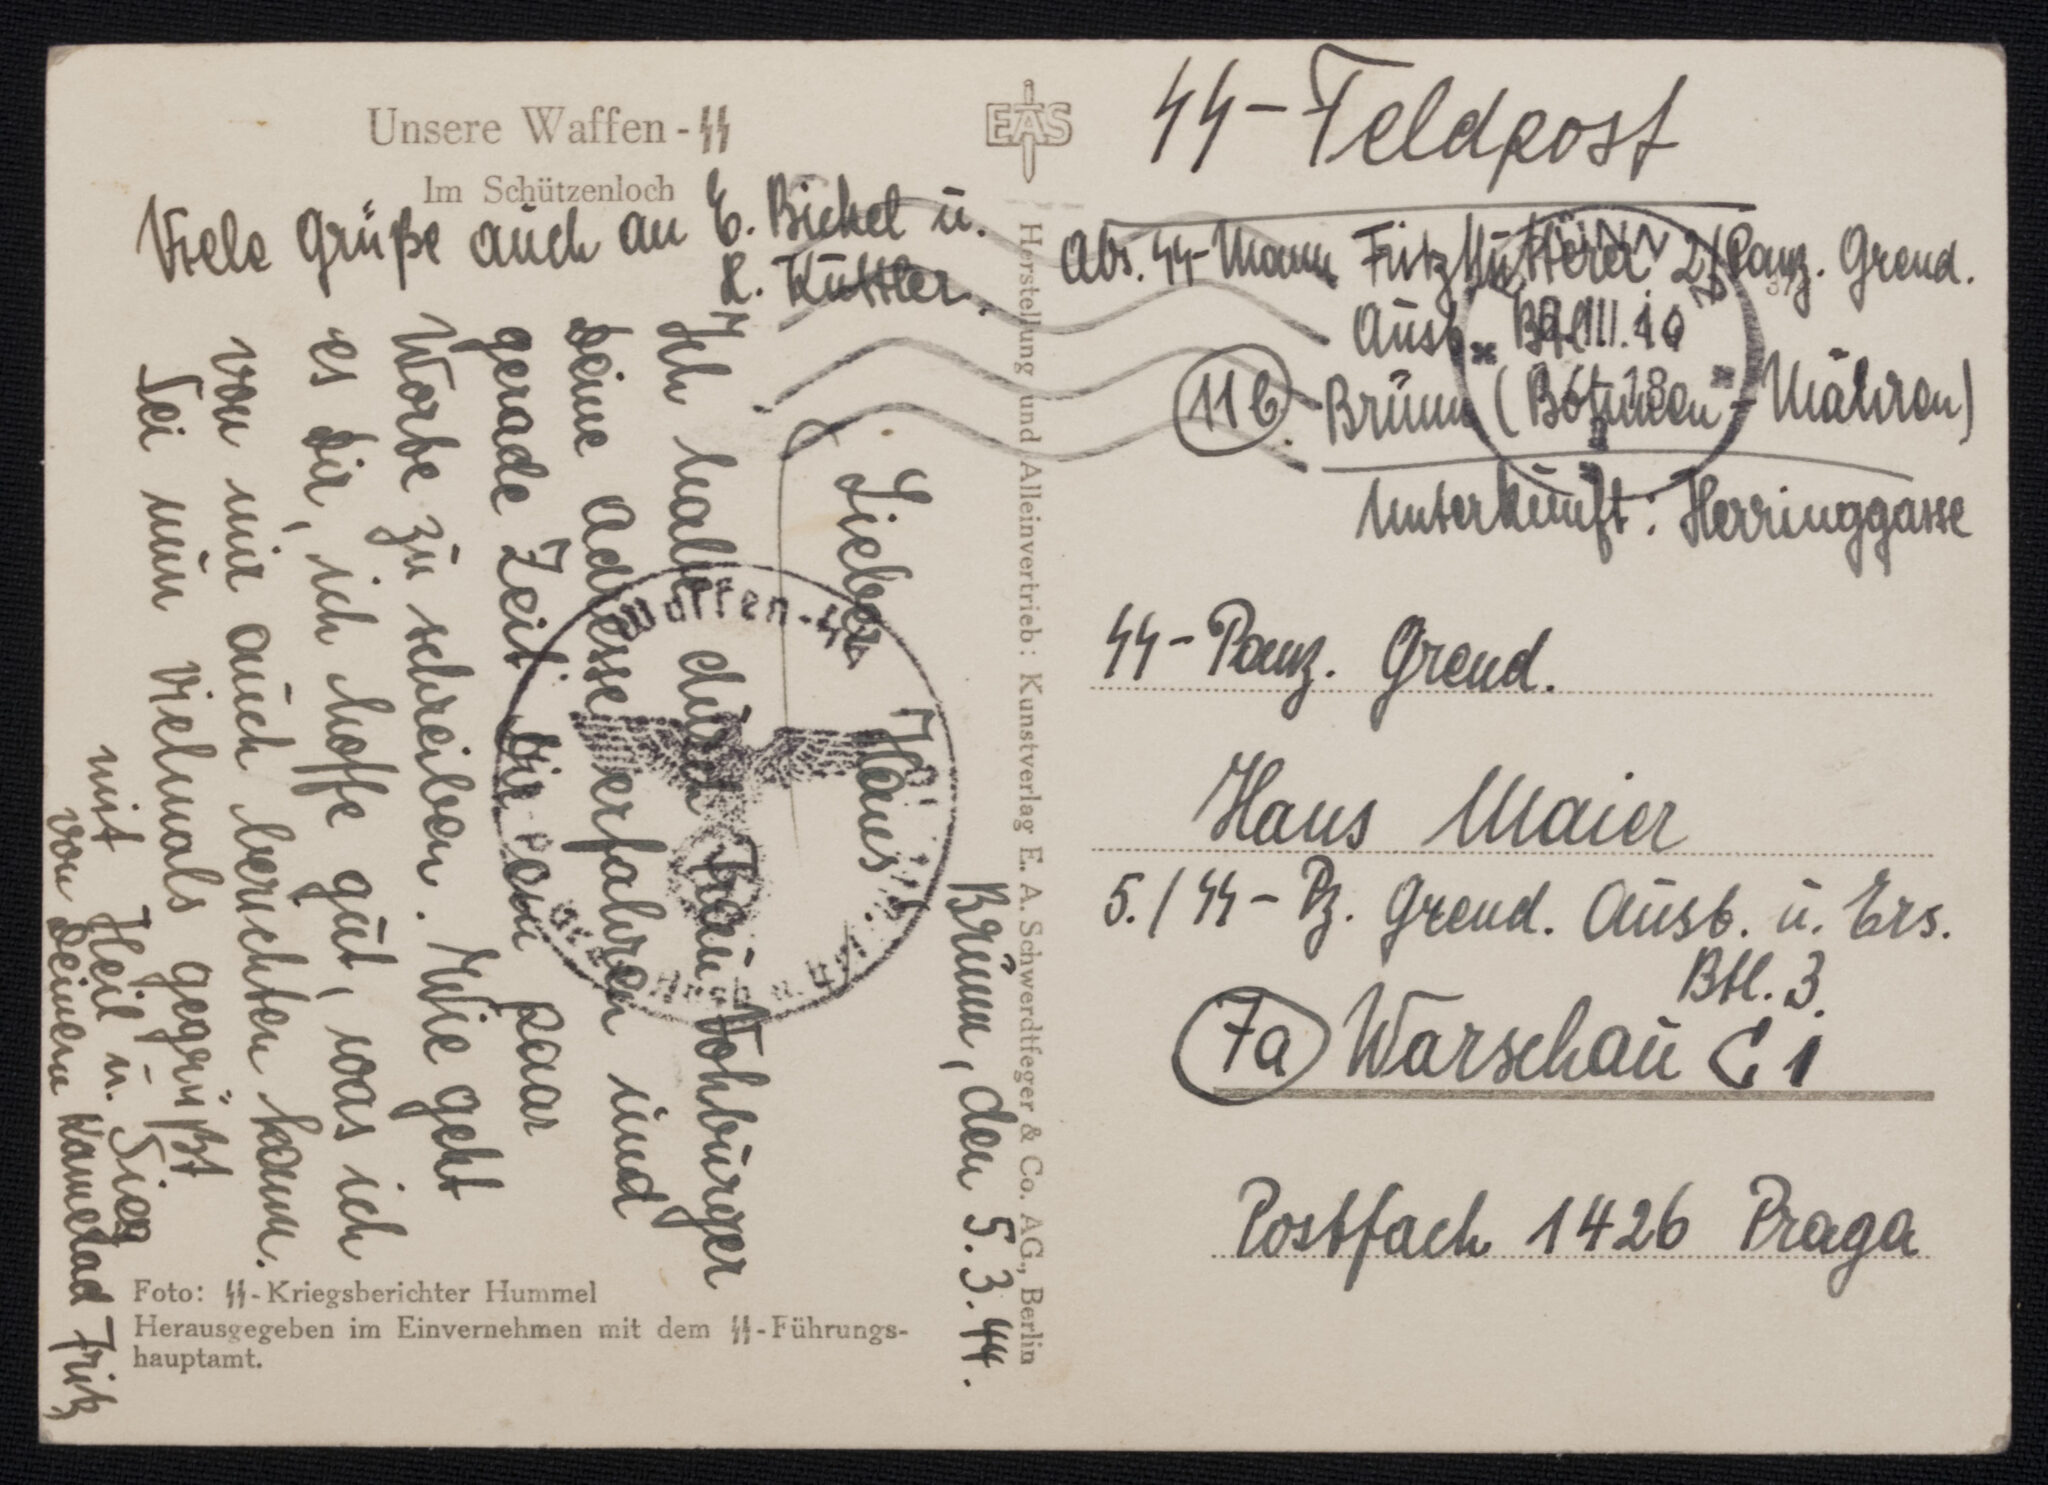 Unsere Waffen-SS
Im Schützenloch
Viele Grüße auch an E. Bickel u.
K. Kuttler.
Brünn, den 5.3.44.
Lieber Hans
Ich habe durch Frau Vohburger
Deine Adresse erfahren und
gerade Zeit Dir ein paar
Worte zu schreiben. Wie geht
es Dir, ich hoffe gut, was ich
von mir auch berichten kann.
Sei nun vielmals gegrüßt
mit Heil u. Sieg
von Deinem Kamerad Fritz
Foto: SS-Kriegsberichter Hummel
Herausgegeben im Einvernehmen mit dem SS-Führungs-
hauptamt.
EAS
Herstellung und Alleinvertrieb: Kunstverlag E. A. Schwerdtfeger & Co. AG., Berlin
Waffen-SS
SS-Feldpost
Abs. SS-Mann Fritz 2/Panz. Grend.
Ausb. Btl. 10
11b Brünn (Böhmen-Mähren)
Unterkunft: Herringgasse
BRÜNN 2
SS-Panz. Grend.
Hans Maier
5./SS-Pz. Grend. Ausb. u. Ers.
Btl. 3
7a Warschau C 1
Postfach 1426 Praga